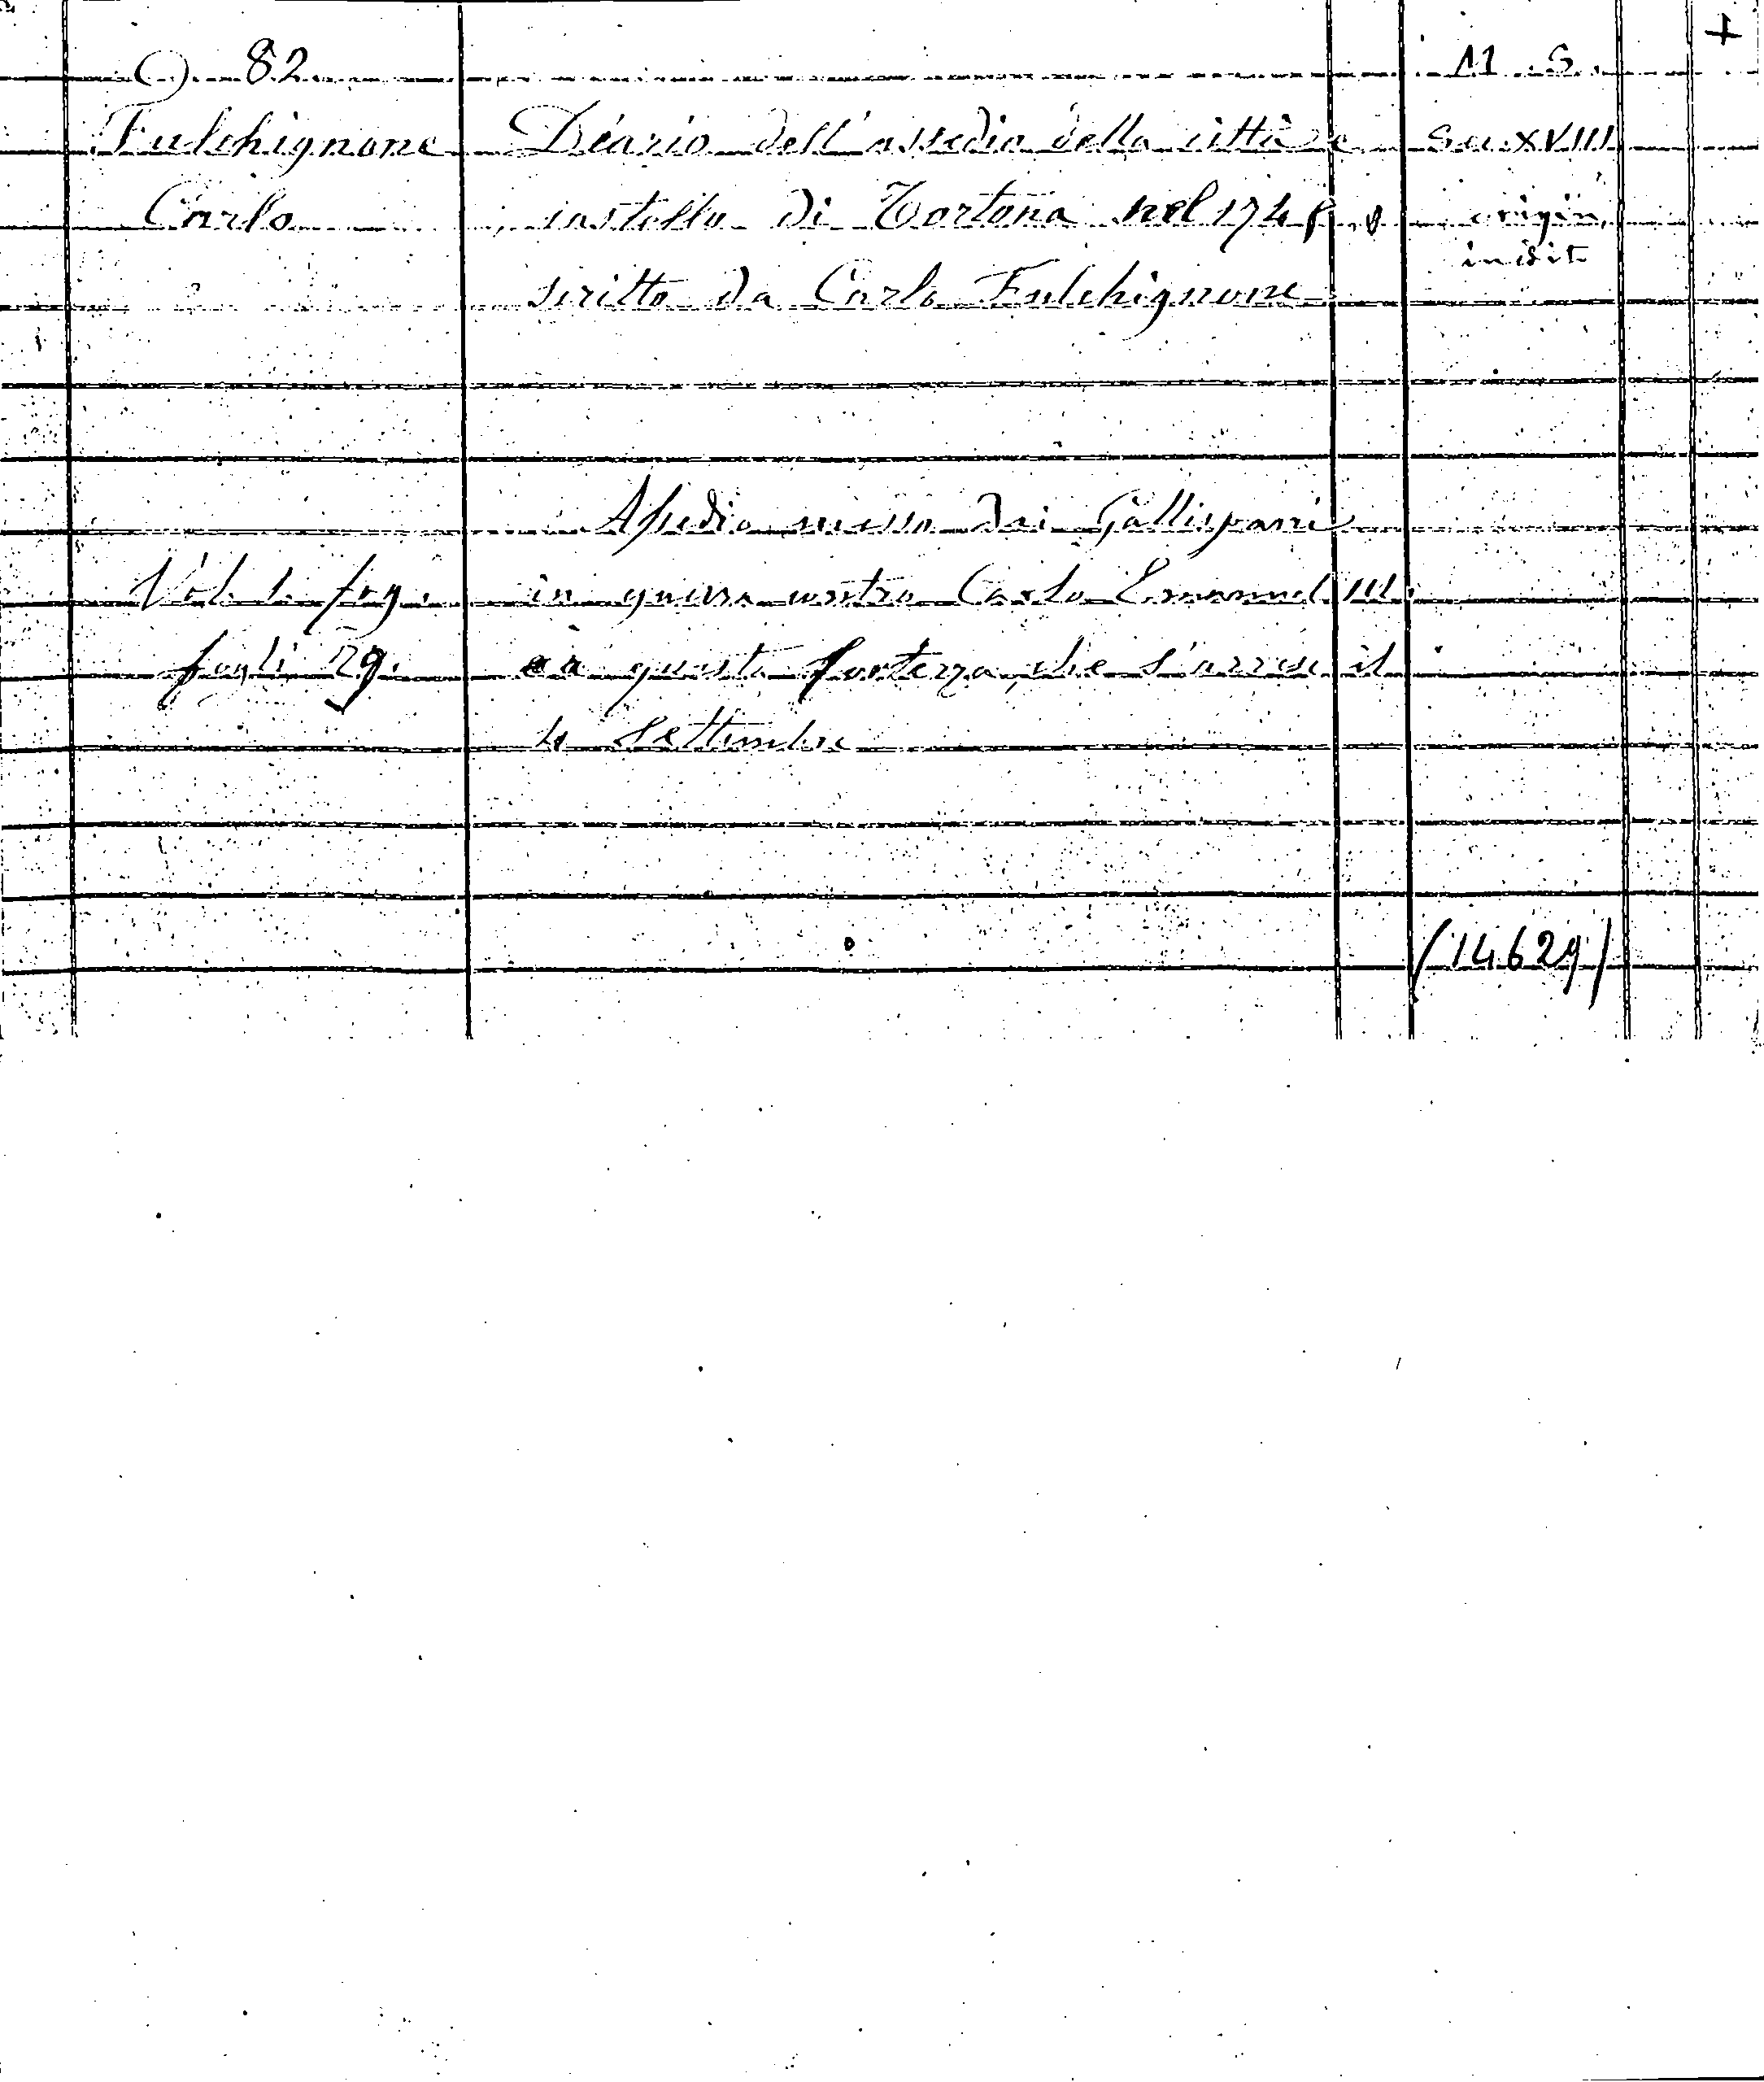 O. 82 M. S. +
Fulchignone Diario dell'assedio della città e Sec. XVIII
Carlo castello di Tortona nel 1745 origin.
inedit.
scritto da Carlo Fulchignone
Assedio messo dai Gallispani
Vol. 1. fog. in guerra contro Carlo Emanuel III.
fogli 29. a questa fortezza, che s'arrese il
4 Settembre
(14629)